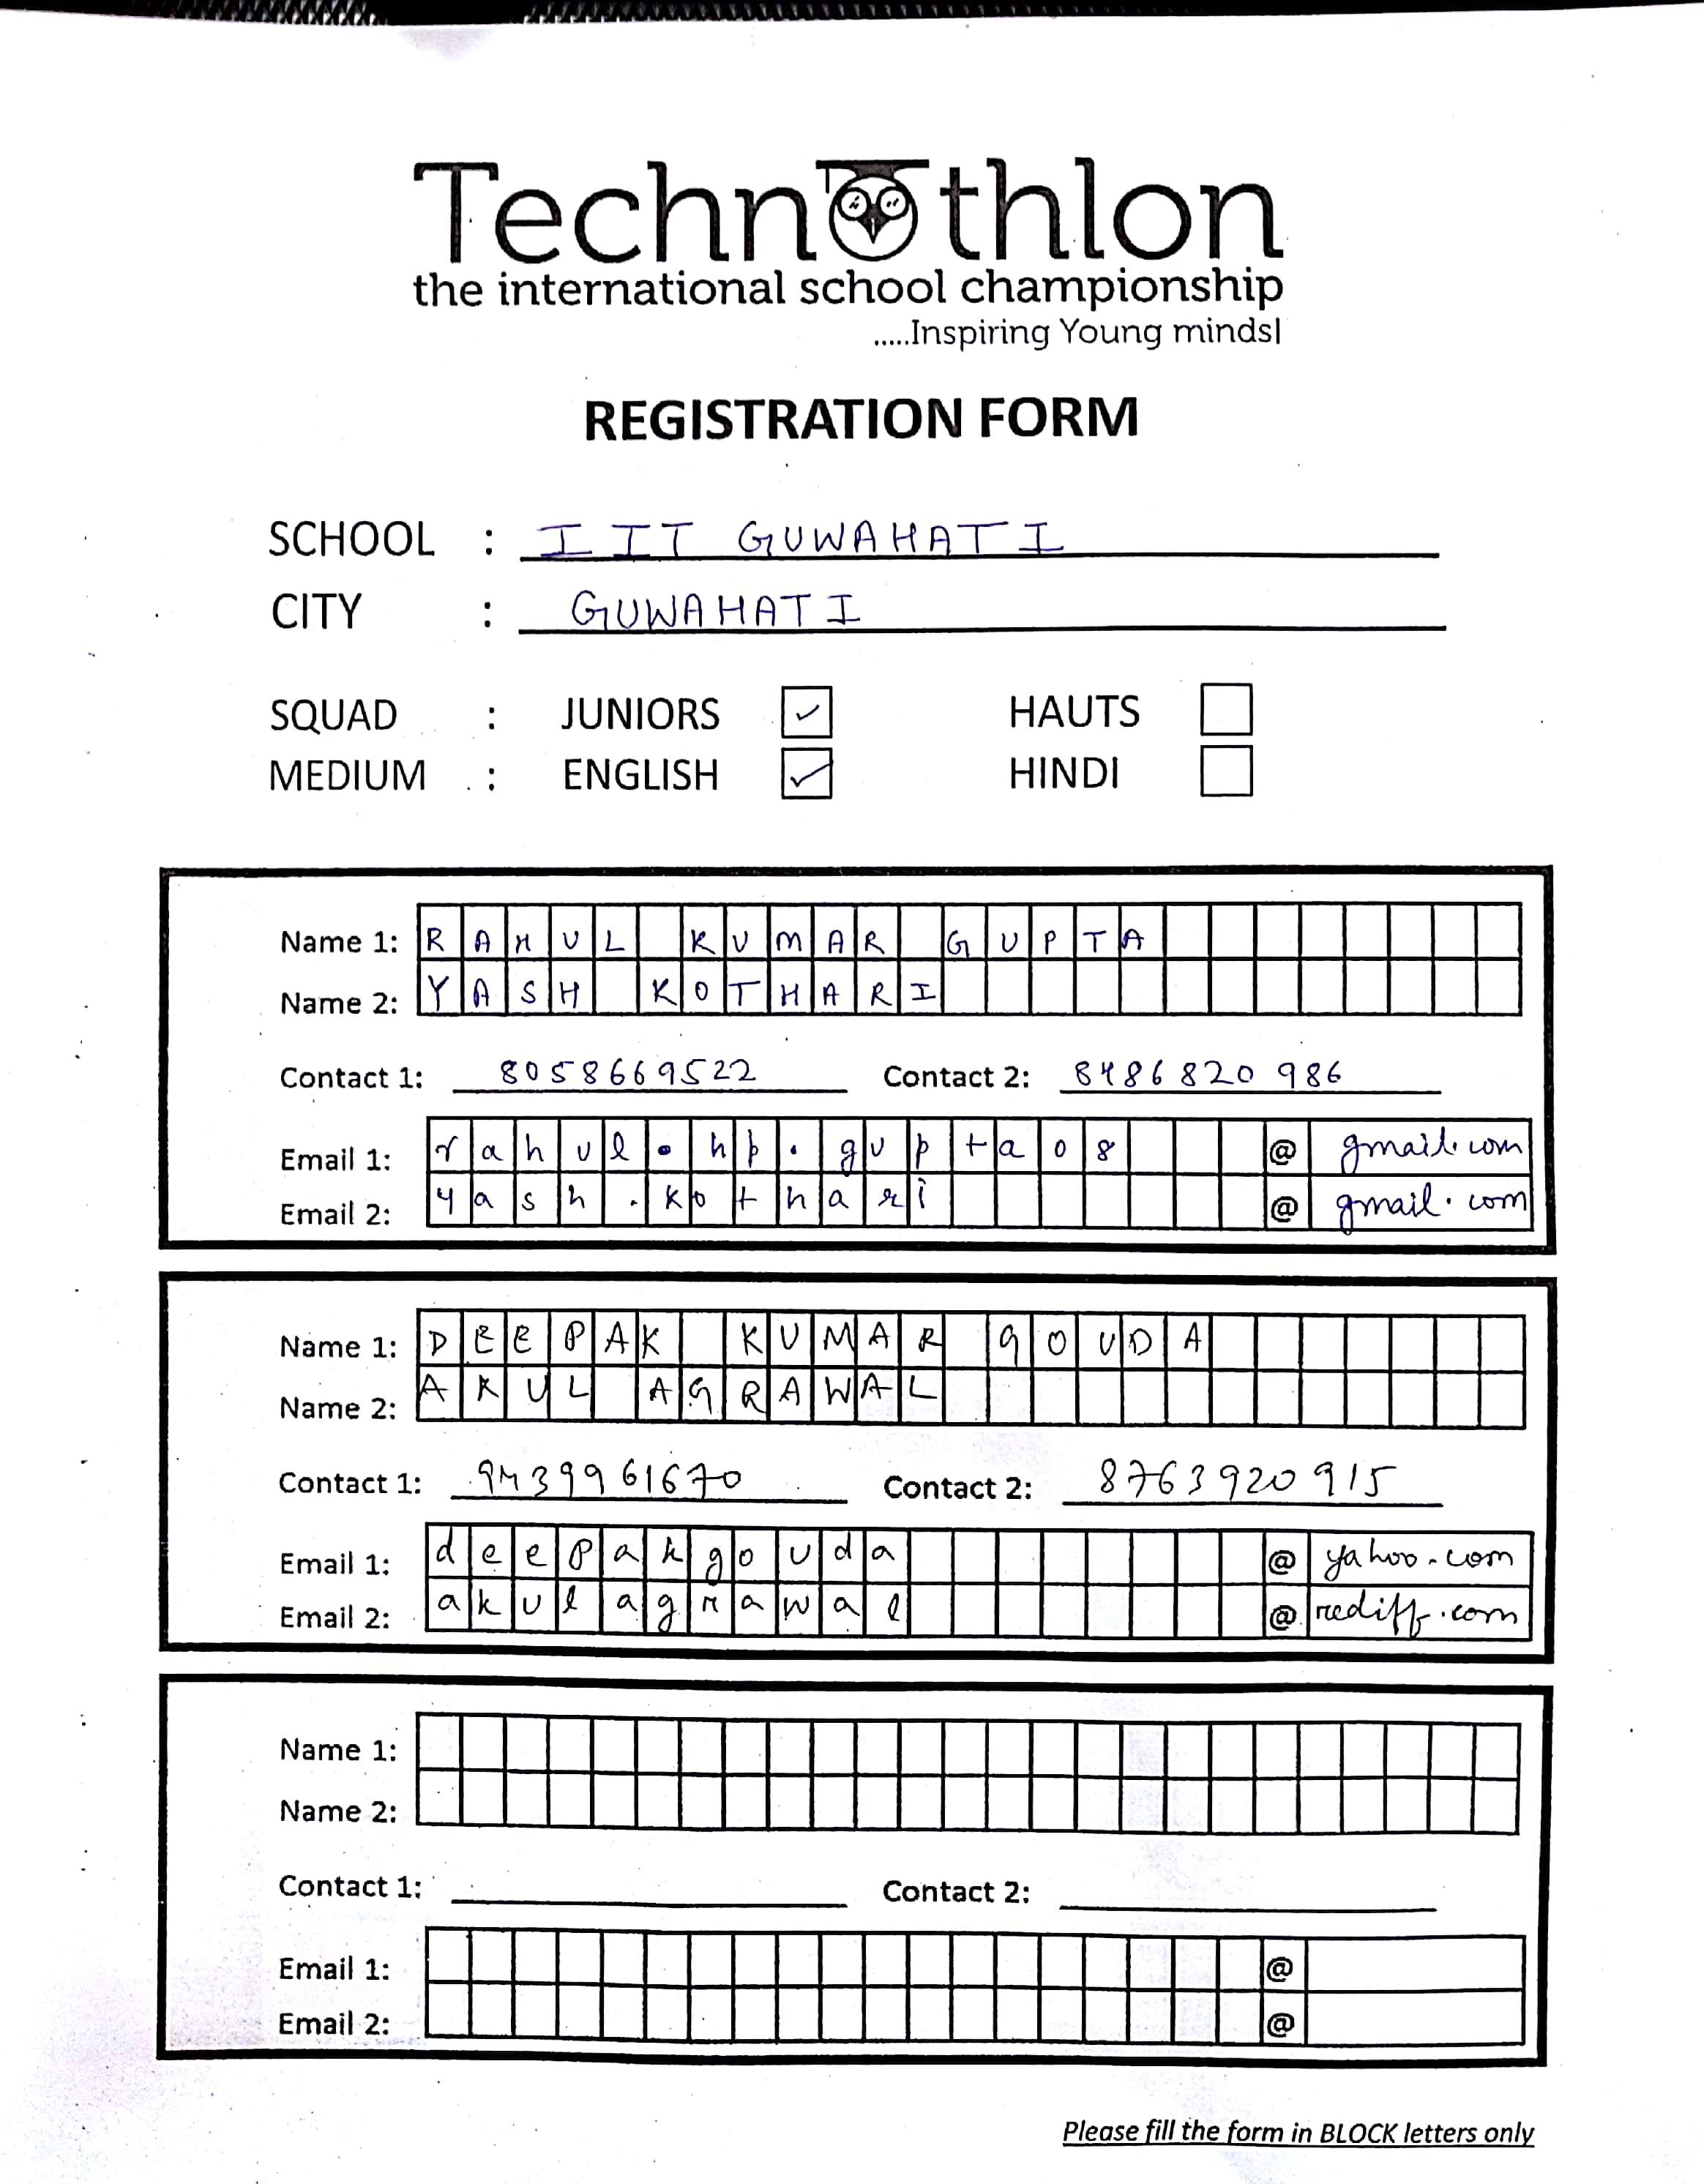 Technothlon
the international school championship
.....Inspiring Young minds|
REGISTRATION FORM
SCHOOL : IIT GUWAHATI
CITY : GUWAHATI
SQUAD : JUNIORS ✓ HAUTS
MEDIUM : ENGLISH ✓ HINDI
Name 1: RAHUL KUMAR GUPTA
Name 2: YASH KOTHARI
Contact 1: 8058669522 Contact 2: 8486820986
Email 1: rahul.hp.gupta08 @ gmail.com
Email 2: yash.kothari @ gmail.com
Name 1: DEEPAK KUMAR GOUDA
Name 2: AKUL AGRAWAL
Contact 1: 9439961670 Contact 2: 8763920915
Email 1: deepakgouda @ yahoo.com
Email 2: akulagrawal @ rediff.com
Name 1:
Name 2:
Contact 1: Contact 2:
Email 1: @
Email 2: @
Please fill the form in BLOCK letters only